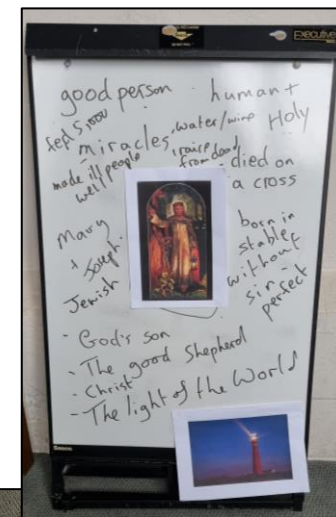 Executive
good person human +
fed 5,000
miracles, water/wine Holy
made ill people well
raised from dead
died on a cross
Mary + Joseph
Jewish
born in stable
without sin - perfect
- God's son
- The good Shepherd
- Christ
- The light of the World